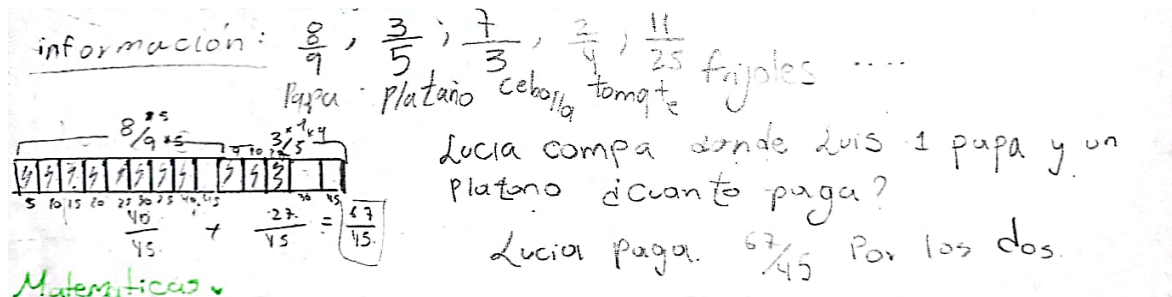 información: 8/9, 3/5; 7/3, 2/4, 11/25
Papa platano cebolla tomate frijoles ....
8/9 *5 *5 3/5 *9
9 10
5 10 15 20 25 30 35 40 45 30 45
40/45 + 27/45 = 67/45
Lucia compa donde Luis 1 papa y un
platano ¿cuanto paga?
Lucia paga. 67/45 Por los dos.
Matematicas.